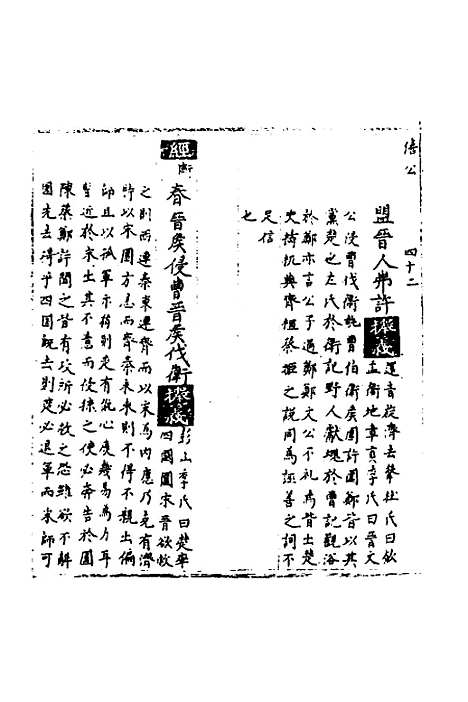 僖公　四十二
盟晉人弗許摭義還音旋濟去聲杜氏曰歛
盂衛地韋貢李氏曰晉文
公侵曹伐衛執曹伯衛矦圍許圍鄭皆以其
黨楚之左氏於衛記野人獻塊於曹記觀浴
於鄭亦言公子過鄭鄭文公不禮焉皆士楚
史檮杌與齊桓蔡姬之說同為誣善之詞不
足信
也
經斷
春晉矦侵曹晉矦伐衛摭義彭山季氏曰楚率
四國圍宋晉欲救
之則西連秦東連齊而以宋為內應乃克有濟
時以宋圍方急而齊秦未來則不得不親出偏
師且以孤軍示弱則楚有玩心庶幾易為力耳
皆近於宋出其不意而侵掠之使必奔告於圍
陳蔡鄭許聞之皆有攻所必救之恐雖欲不解
圍先去得乎四國既去則楚必退軍而宋師可